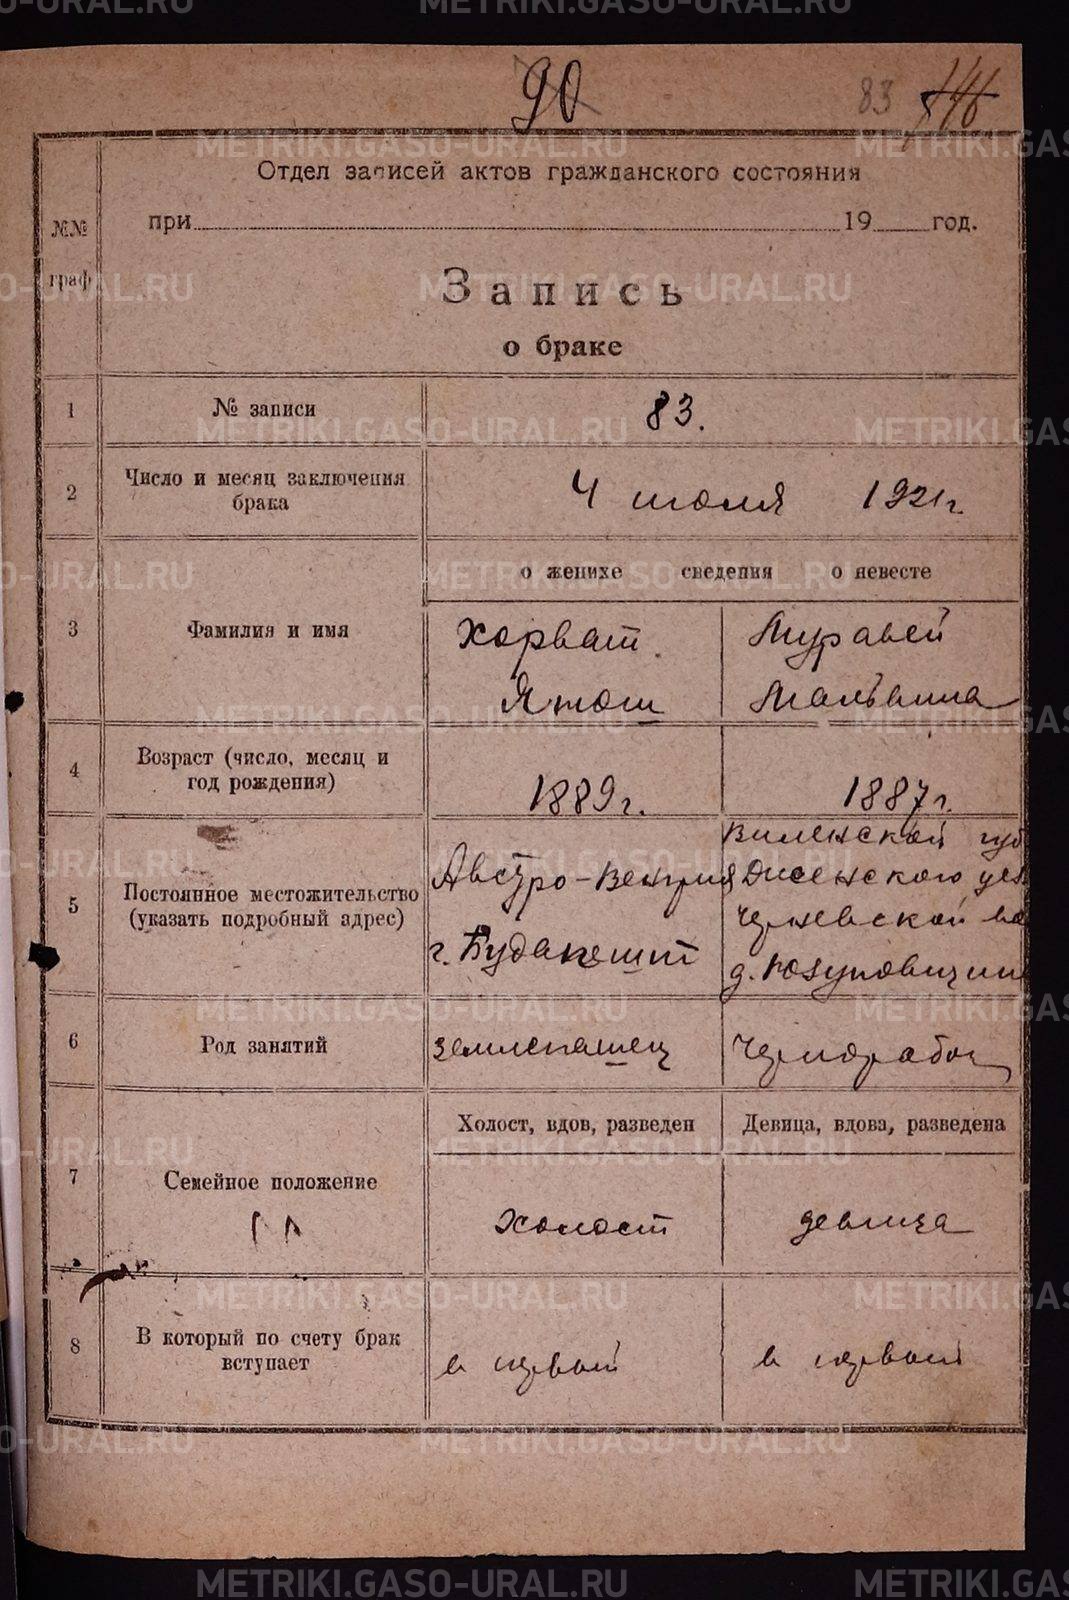 90
83
Отдел записей актов гражданского состояния
№№ граф
при 19 год.
Запись
о браке
1 № записи 83.
2 Число и месяц заключения брака 4 июля 1921 г.
о женихе сведения о невесте
3 Фамилия и имя
Хорват Муравей
Янош Мальвина
4 Возраст (число, месяц и год рождения) 1889 г. 1887 г.
5 Постоянное местожительство (указать подробный адрес)
Виленской губ
Австро-Венгрия Дисенского уез
Черневской во
г. Будапешт
д.
6 Род занятий землепашец Чернорабоч
Холост, вдов, разведен Девица, вдова, разведена
7 Семейное положение холост девица
8 В который по счету брак вступает в первый в первый
METRIKI.GASO-URAL.RU